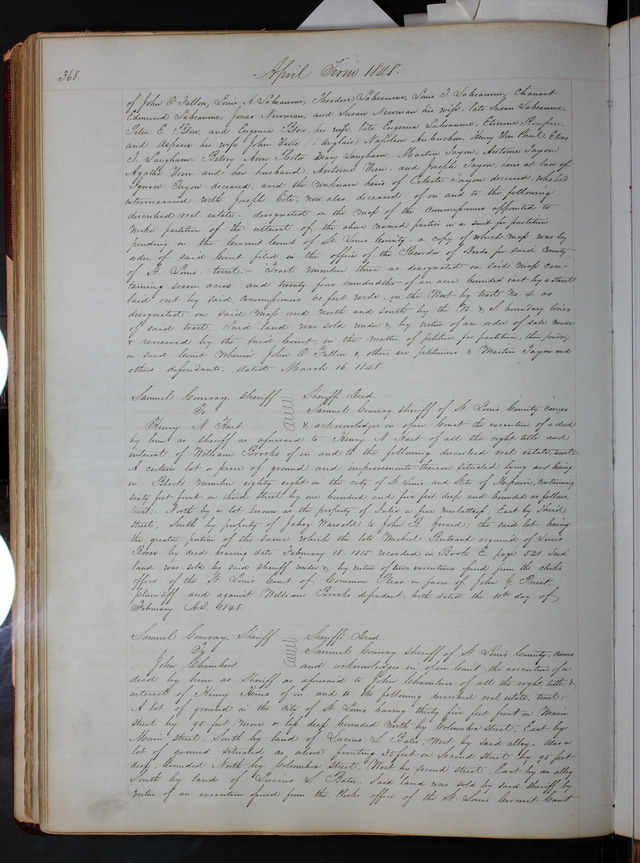 368
April Term 1848.
of John O'Fallon, Louis A Labeaume, Theodore Labeaume, Louis T. Labeaume, Chauvet
Edmund Labeaume, Jonas Newman, and Susan Newman his wife, late Susan Labeaume,
Peter E. Blow, and Eugenia Blow his wife late Eugenia Labeaume, Etienne
and his wife John Valle Napoleon Aubuchon, Henry Von Phul, Elias
T. Langham, Betsey Ann Rector Mary Langham, Martin Tayon, Antoine Tayon
Agatha Uren and her husband Antoine Uren, and Joseph Tayon, heirs at law of
Ignace Tayon deceased, and the unknown heirs of Celeste Tayon deceased who had
intermarried with Joseph Cote, now also deceased, of in and to the following
described real estate, designated on the Map of the Commissioners appointed to
make partition of the interest of the above named parties in a suit for partition
pending in the Circuit Court of St Louis County, a copy of which map was by
order of said Court filed in the office of the Recorder of Deeds for said County
of St Louis towit:- Tract number three as designated on said map con-
taining seven acres and twenty four hundredths of an acre bounded east by a street
laid out by said Commissioners 60 feet wide, on the West by tract no. 4 as
designated on said Map and North and South by the N. & S. boundary lines
of said tract. Said land was sold under & by virtue of an order of sale made
& renewed by the said Court, in the Matter of petition for partition, then pending
in said Court wherein John O Fallon & others are petitioners & Martin Tayon and
others defendants. dated March 16. 1848.
Samuel Conway, sheriff Sheriffs Deed.
To Samuel Conway sheriff of St. Louis County comes
Henry N. Hart & acknowledges in open Court the execution of a deed
by him as sheriff as aforesaid to Henry N Hart of all the right title and
interest of William Brooks of in and to the following described real estate, towit:
A certain lot or piece of ground and improvements thereon situated lying and being
in Block number eighty eight in the city of St Louis and State of Missouri, containing
sixty feet front on third street by one hundred and five feet deep and bounded as follows.
towit: North by a lot known as the property of Julie a free mulattress, East by Third
street, South by property of Jabez Warner sold to John B. the said lot being
the greater portion of the same which the late Michael acquired of Louis
Bones by deed bearing date February 18. 1815 recorded in Book E. page 521 Said
land was sold by said sheriff under & by virtue of two executions issued from the clerks
office of the St Louis Court of Common Pleas in favor of John G. Priest,
plaintiff and against William Brooks defendant, both dated the 10th day of
February A.D. 1848.
Samuel Conway, Sheriff Sheriffs Deed.
To Samuel Conway sheriff of St Louis County, comes
John Chambers. and acknowledges in open Court, the execution of a
deed by him as Sheriff as aforesaid to John Chambers of all the right title &
interest of Henry of in and to the following described real estate, towit:
A lot of ground in the City of St Louis having thirty five feet front on Main
street by 90 feet more or less deep bounded North by Columbia Street, East by
Main street, South by land of Lucius S. Bates, West, by said alley. Also a
lot of ground situated as above fronting 35 feet on Second Street by 90 feet
deep, bounded North by Columbia Street, West by second street, East by an alley
South by land of Lucius S Bates. Said land was sold by said sheriff by
virtue of an execution issued from the clerks office of the St. Louis Circuit Court